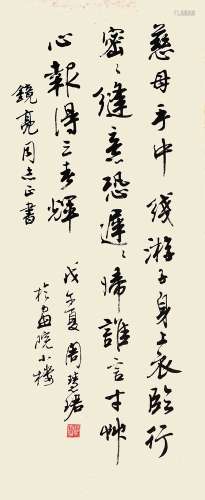 慈母手中线游子身上衣临行
密〻缝意恐迟〻归谁言寸草
心报得三春辉
镜亮同志正书
戊午夏周慧珺
於画院小楼